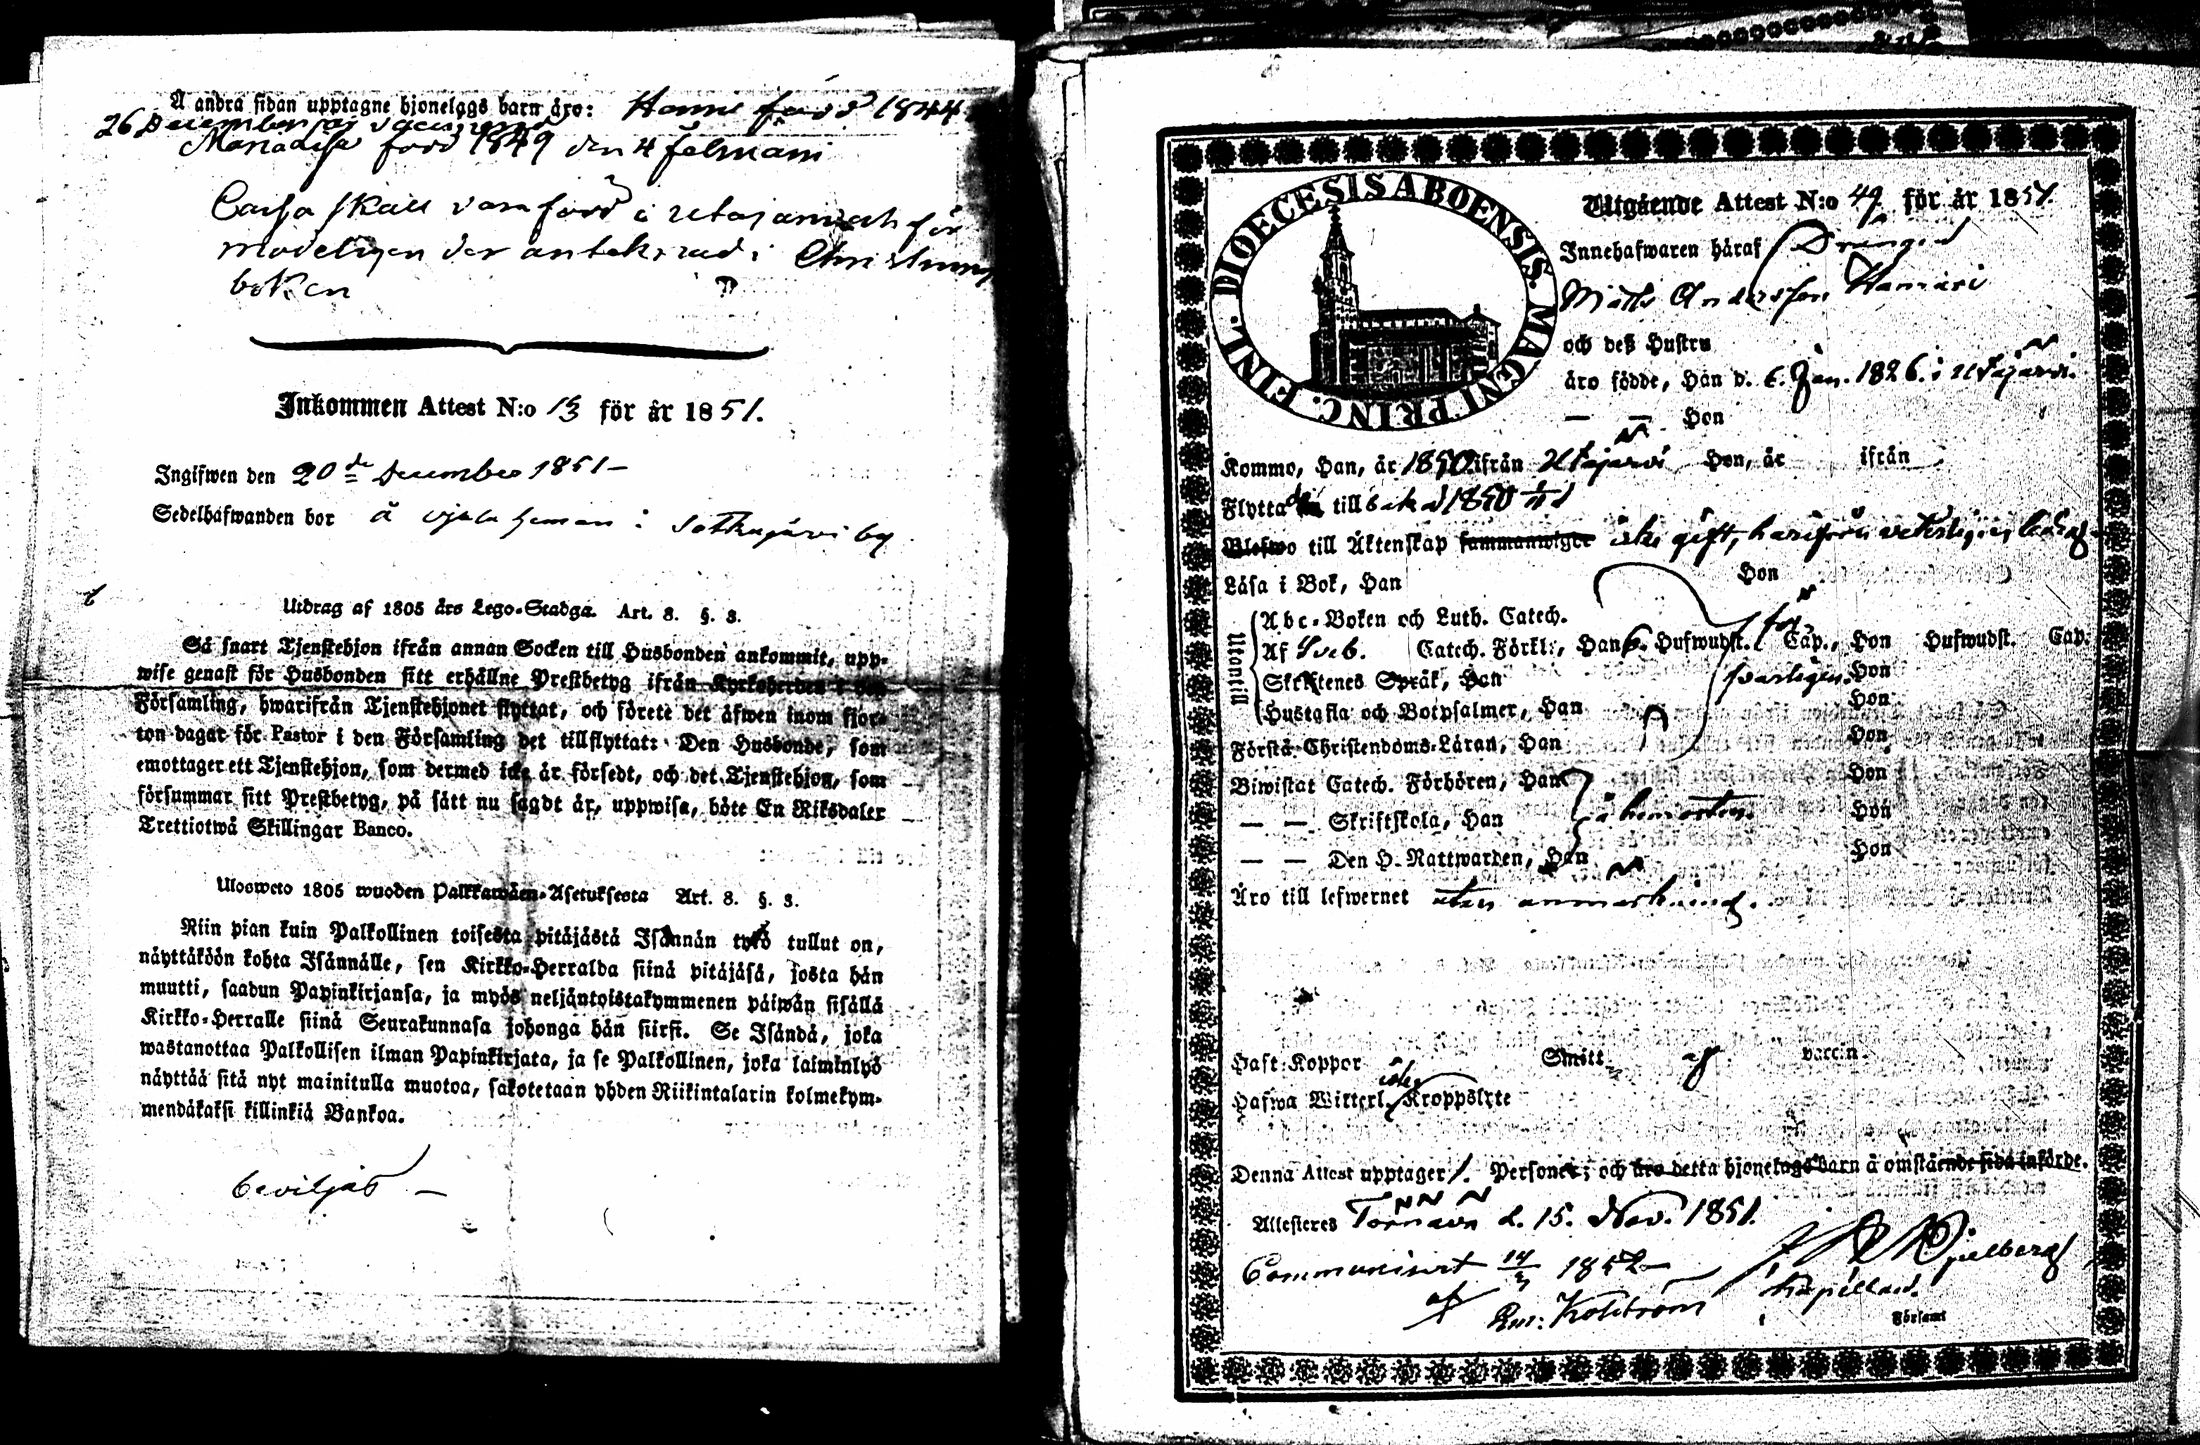 Å andra sidan upptagne hjonelags barn äro: Hanna född 1844
26 December
Maria Lisa född 1849 den 4 februari
Caisa skall vara född i Utajärvi
boken
Inkommen Attest N:o 13 för år 1851.
Ingifwen den 20de December 1851 —
Sedelhafwanden bor å hemman i Sotkajärvi by
Utdrag af 1805 års Lego-Stadga. Art. 8. §. 3.
Så snart Tjenstehjon ifrån annan Socken till Husbonden ankommit, upp-
wise genast för Husbonden sitt erhållne Prestbetyg ifrån Kyrkoherden i den
Församling, hwarifrån Tjenstehjonet flyttat, och förete det äfwen inom fjor-
ton dagar för Pastor i den Församling det tillflyttat: Den Husbonde, som
emottager ett Tjenstehjon, som dermed icke är försedt, och det Tjenstehjon, som
försummar sitt Prestbetyg, på sätt nu sagdt är, uppwisa, böte En Riksdaler
Trettiotwå Skillingar Banco.
Ulosweto 1805 wuoden Palkkawäen-Asetuksesta Art. 8. §. 3.
Niin pian kuin Palkollinen toisesta pitäjästä Isännän tykö tullut on,
näyttäköön kohta Isännälle, sen Kirkko-Herralda siinä pitäjäsä, josta hän
muutti, saadun Papinkirjansa, ja myös neljäntoistakymmenen päiwän sisällä
Kirkko-Herralle siinä Seurakunnasa johonga hän siirsi. Se Isändä, joka
wastanottaa Palkollisen ilman Papinkirjata, ja se Palkollinen, joka laiminlyö
näyttää sitä nyt mainitulla muotoa, sakotetaan yhden Riikintalarin kolmekym-
mendäkaksi killinkiä Bankoa.
beviljas —
DIOECESIS ABOENSIS. MAGNI PRINC. FINL.
Utgående Attest N:o 49 för år 1851.
Innehafwaren häraf Drängen
Matts Andersson Hamari
och deß Hustru
äro födde, Han d. 6. Jan. 1826. i Utajärvi.
— — Hon
Kommo, Han, år 1850 ifrån Utajärvi Hon, år ifrån
Flytta till 1850
Blefwo till Äktenskap sammanwigde icke gift, härifrån veterligen ledig
Läsa i Bok, Han Hon
Utantill
Abc-Boken och Luth. Catech.
Af Sveb. Catech. Förkl:, Han 6. Hufwudst. Cap., Hon Hufwudst. Cap.
Skriftenes Språk, Han Hon
Hustafla och Botpsalmer, Han Hon
Förstå Christendoms-Läran, Han Hon
Biwistat Catech. Förhören, Han Hon
— — Skriftskola, Han Hon
— — Den H. Nattwarden, Han Hon
Äro till lefwernet utan anmärkning.
Haft Koppor Smitt. vaccin.
Hafwa Witterl. icke Kroppslyte
Denna Attest upptager 1. Personer; och äro detta hjonelags barn å omstående sida införde.
Attesteras Tornava d. 15. Nov. 1851.
Communicerat 1852
af
Kapellan.
Församl